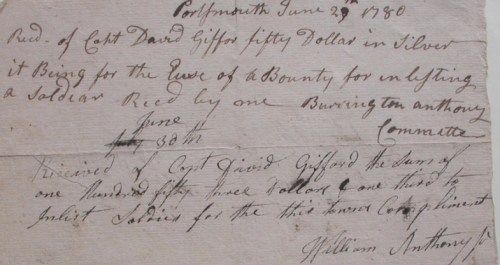 Portsmouth June 29th 1780
Recd. of Capt David Giffor fifty Dollar in Silver
it Being for the Euse of a Bounty for enlisting
a Soldear Recd by me Burrington anthony
Committe
June
July 30th
Received of Capt David Gifford the Sum of
one Hundred fifty three Dollars & one third to
Inlist Soldies for the this towns Compliment
William Anthony Jr